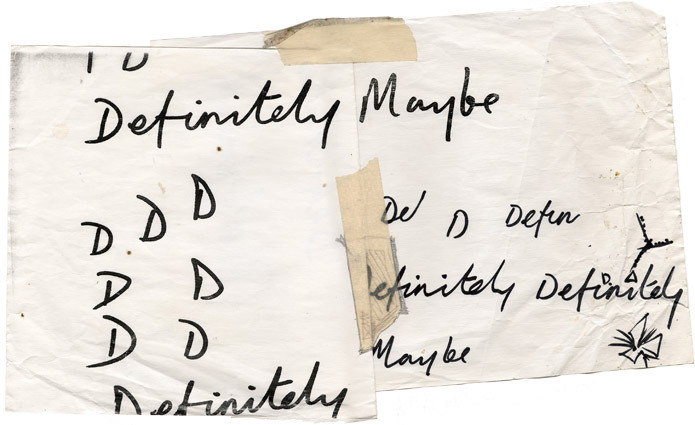 D
Definitely Maybe
D D D De D Defin
D D efinitely Definitely
D D Maybe
Definitely